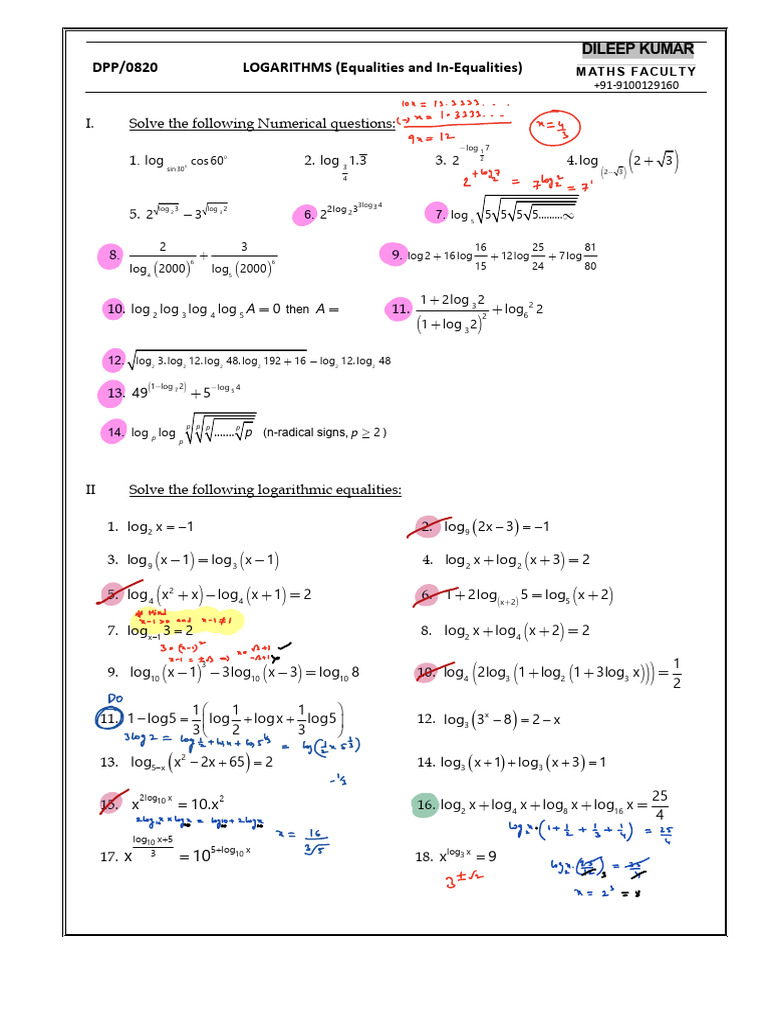 DPP/0820 LOGARITHMS (Equalities and In-Equalities) DILEEP KUMAR
MATHS FACULTY
+91-9100129160
10x = 13.3333...
(-) x = 1.3333...
9x = 12
x = 4/3
I. Solve the following Numerical questions:
1. log_{sin30°} cos60° 2. log_{3/4} 1.3̅ 3. 2^{-log_{1/2} 7} 4. log_{(2-√3)} (2+√3)
2^{+log_2 7} = 7^{log_2 2} = 7^1
5. 2^{√(log_2 3)} − 3^{√(log_3 2)} 6. 2^{2log_2 3^{3log_3 4}} 7. log_5 √(5√(5√(5√(5.........∞
8. 2/log_4 (2000)^6 + 3/log_5 (2000)^6 9. log2 + 16log 16/15 + 12log 25/24 + 7log 81/80
10. log_2 log_3 log_4 log_5 A = 0 then A = 11. (1+2log_3 2)/(1+log_3 2)^2 + log_6^2 2
12. √(log_2 3.log_2 12.log_2 48.log_2 192 + 16) − log_2 12.log_2 48
13. 49^{(1−log_7 2)} + 5^{−log_5 4}
14. log_p log_p ᵖ√ᵖ√ᵖ√.......ᵖ√p (n-radical signs, p ≥ 2 )
II Solve the following logarithmic equalities:
1. log_2 x = −1 2. log_9 (2x−3) = −1
3. log_9 (x−1) = log_3 (x−1) 4. log_2 x + log_2 (x+3) = 2
5. log_4 (x²+x) − log_4 (x+1) = 2 6. 1+2log_{(x+2)} 5 = log_5 (x+2)
x-1>0 and x-1≠1
7. log_{x−1} 3 = 2 8. log_2 x + log_4 (x+2) = 2
3 = (x-1)²
x-1 = ±√3 ⇒ x = √3+1 ✓
-√3+1 ✗
9. log_10 (x−1)³ − 3log_10 (x−3) = log_10 8 10. log_4 (2log_3 (1+log_2 (1+3log_3 x))) = 1/2
DO
11. 1−log5 = 1/3 (log 1/2 + logx + 1/3 log5) 12. log_3 (3^x −8) = 2−x
3log2 = log 1/2 + log x + log 5^{1/3} = log(1/2 x 5^{1/3})
13. log_{5−x} (x²−2x+65) = 2 14. log_3 (x+1) + log_3 (x+3) = 1
-1/3
15. x^{2log_10 x} = 10.x² 16. log_2 x + log_4 x + log_8 x + log_16 x = 25/4
2log_10 x × log x = log 10 + 2log x
x = 16/∛5
log_2 x · (1 + 1/2 + 1/3 + 1/4) = 25/4
17. x^{(log_10 x+5)/3} = 10^{5+log_10 x} 18. x^{log_3 x} = 9
3^{±√2}
log_2 x · (25/12) = 25/4
3
x = 2³ = 8